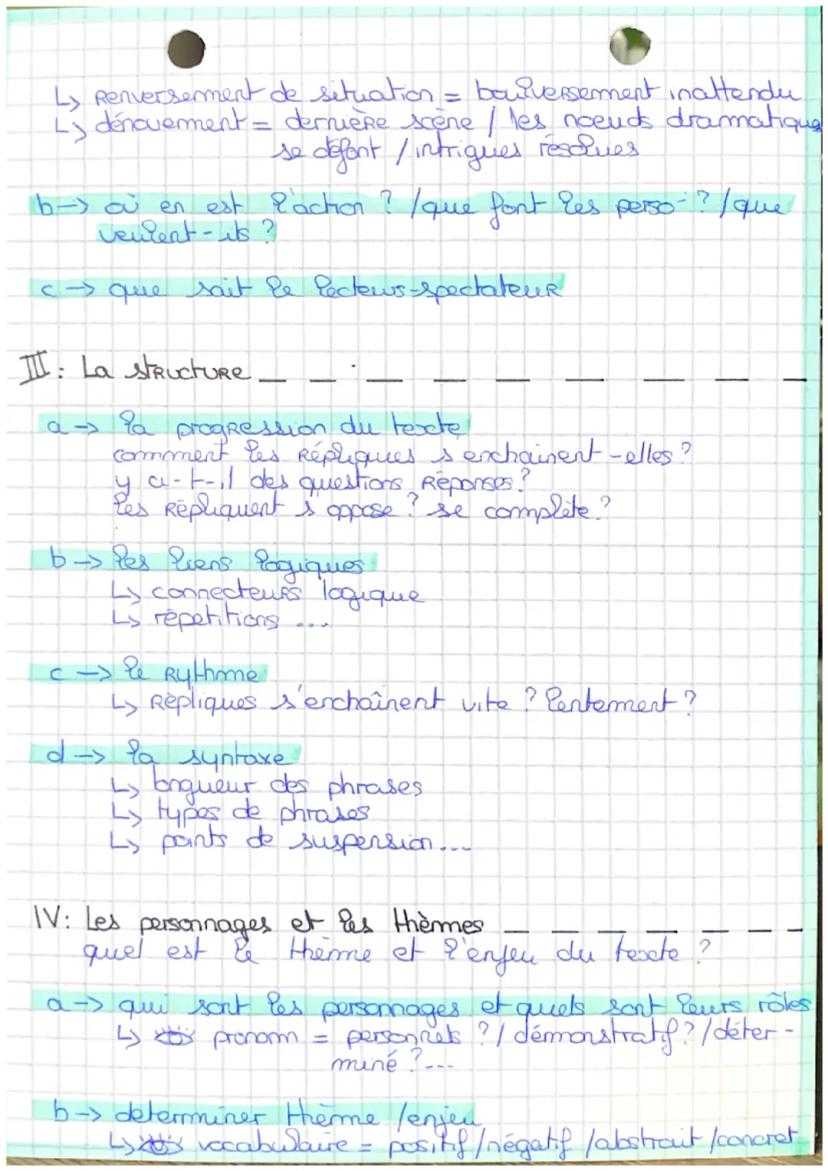 ↳ Renversement de situation = boulversement inattendu
↳ dénouement = dernière scène / les noeuds dramatique
se défont / intrigues résolues
b → où en est l'action ? / que font les perso- ? / que
veulent-ils ?
c → que sait le lecteurs-spectateur
III : La structure
a → la progression du texte
comment les répliques s enchainent-elles ?
y a-t-il des questions Réponses ?
les Répliquent s oppose ? se complète ?
b → les liens logiques
↳ connecteurs logique
↳ répetitions ...
c → le Rythme
↳ Répliques s'enchaînent vite ? lentement ?
d → la syntaxe
↳ longueur des phrases
↳ types de phrases
↳ points de suspension ...
IV : Les personnages et les thèmes
quel est le thème et l'enjeu du texte ?
a → qui sont les personnages et quels sont leurs rôles
↳ pronom = personnels ? / démonstratif ? / déter-
miné ? ...
b → determiner thème / enjeu
↳ vocabulaire = positif / négatif / abstrait / concret